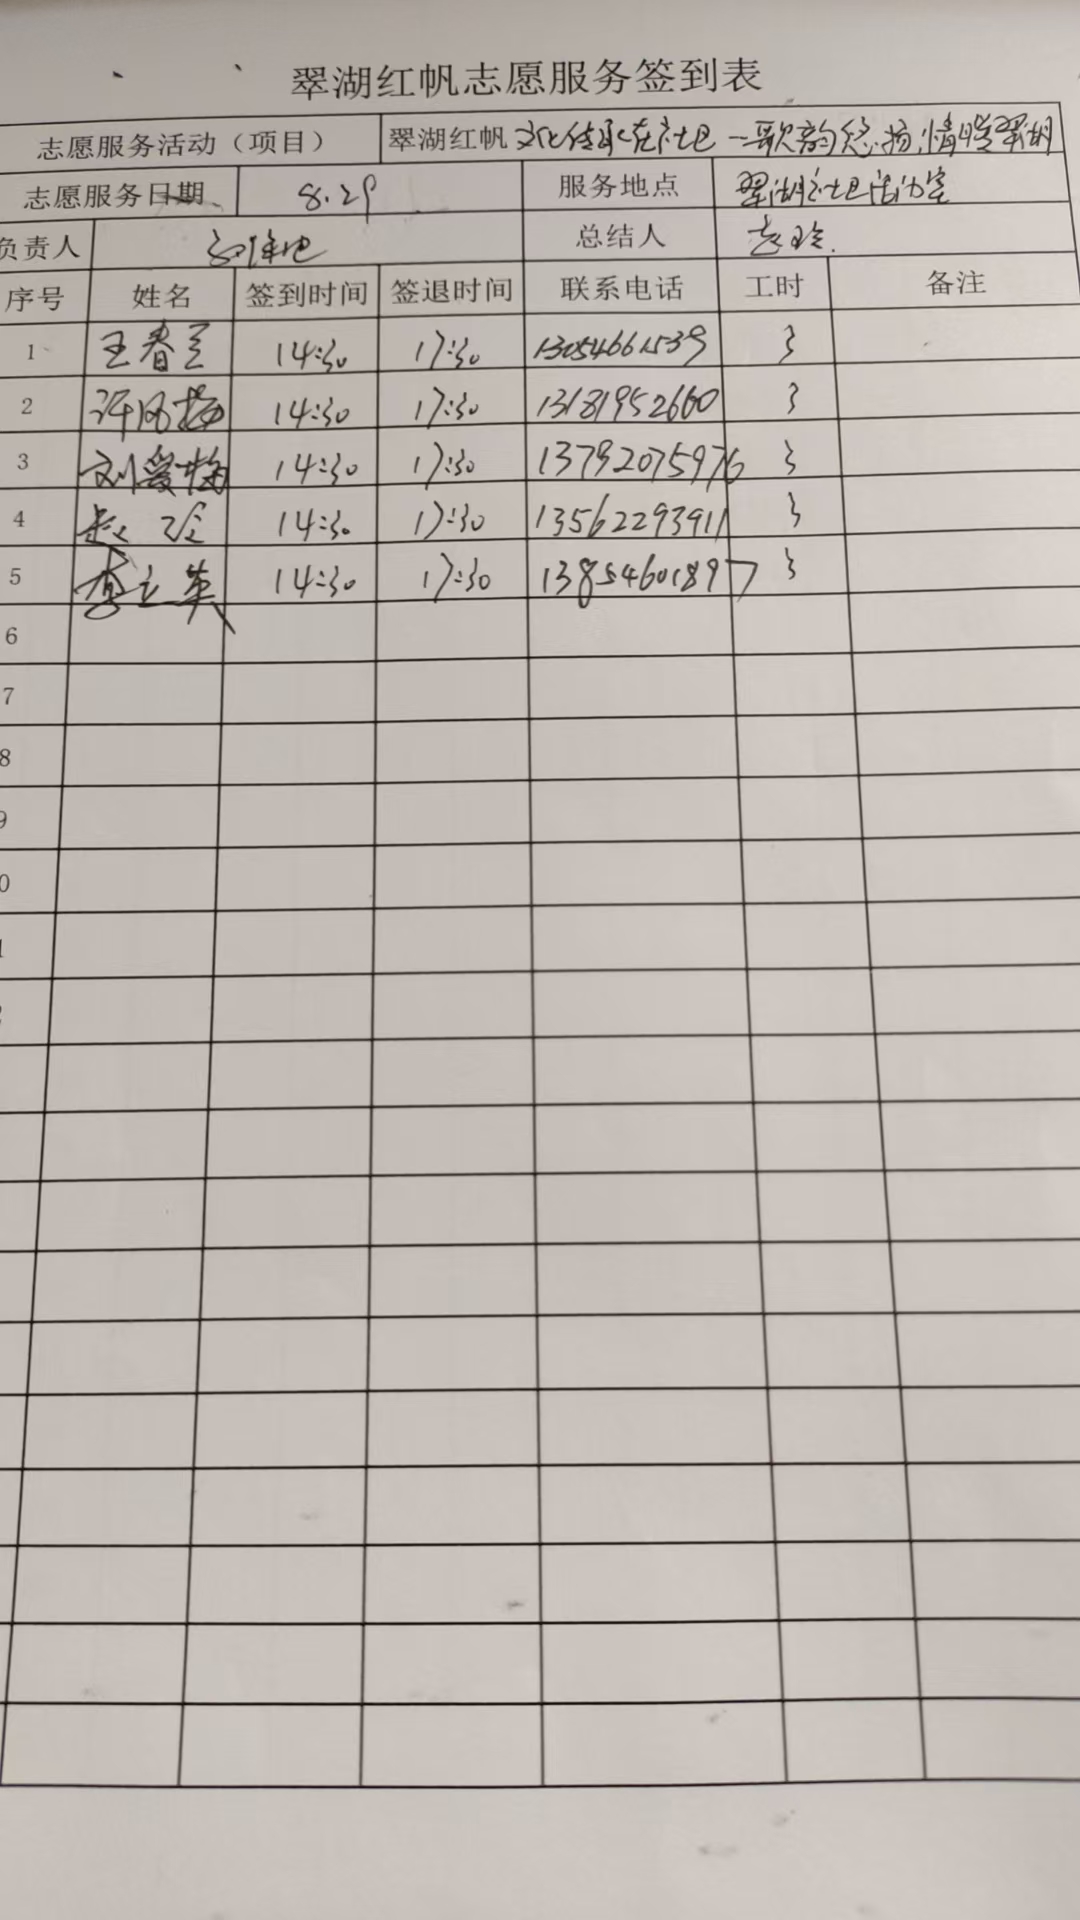 翠湖红帆志愿服务签到表
志愿服务活动（项目） 翠湖红帆 文化传承在社区 —歌韵悠扬,情暖翠湖
志愿服务日期 8.29 服务地点 翠湖社区活动室
负责人 总结人 赵玲
序号 姓名 签到时间 签退时间 联系电话 工时 备注
1 王春兰 14:30 17:30 13054661539 3
2 许风梅 14:30 17:30 13181952660 3
3 刘爱梅 14:30 17:30 13792075976 3
4 赵玲 14:30 17:30 13562293911 3
5 李立英 14:30 17:30 13854601897 3
6
7
8
9
0
1
2